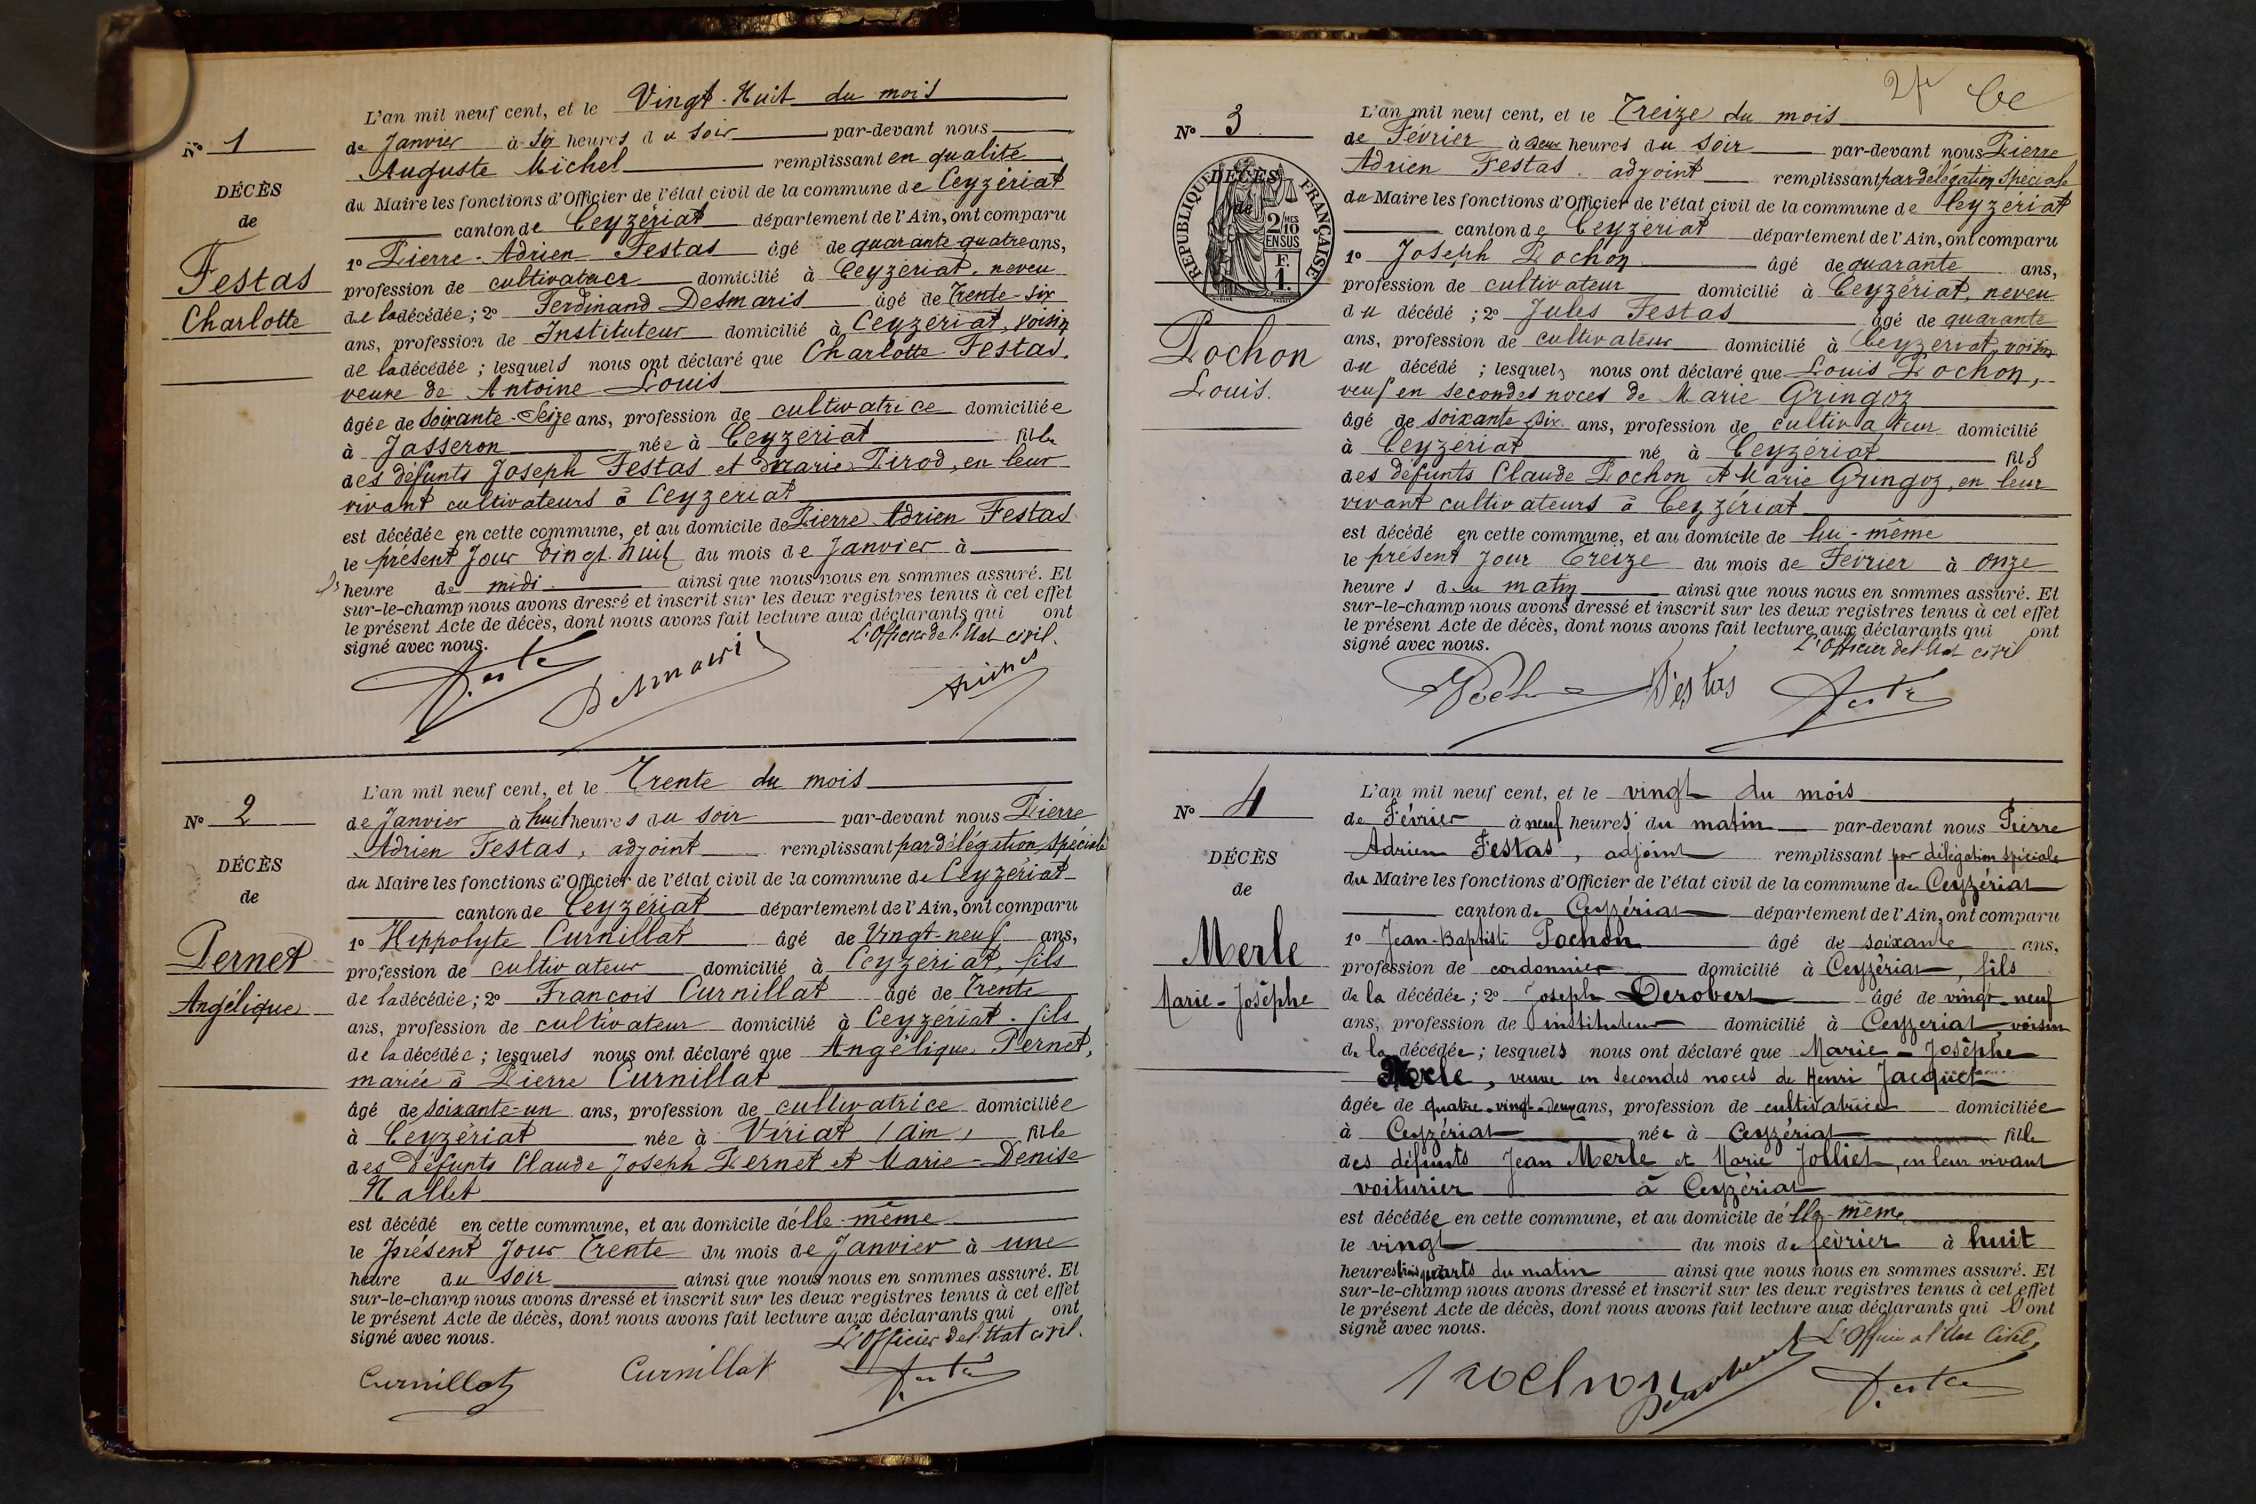 L'an mil neuf cent, et le Vingt-Huit du mois
N° 1
de Janvier à six heures du soir par-devant nous
Auguste Michel remplissant en qualité
DÉCÈS
du Maire les fonctions d'Officier de l'état civil de la commune de Ceyzériat
de
canton de Ceyzériat département de l'Ain, ont comparu
1° Pierre-Adrien Festas âgé de quarante-quatre ans,
Festas
profession de cultivateur domicilié à Ceyzériat, neveu
Charlotte
de la décédée; 2° Ferdinand Desmaris âgé de Trente-six
ans, profession de Instituteur domicilié à Ceyzériat, voisin
de la décédée; lesquels nous ont déclaré que Charlotte Festas,
veuve de Antoine Louis
âgée de soixante-seize ans, profession de cultivatrice domiciliée
à Jasseron née à Ceyzériat fille
des défunts Joseph Festas et Marie Pirod, en leur
vivant cultivateurs à Ceyzériat
est décédée en cette commune, et au domicile de Pierre Adrien Festas
le présent jour vingt-huit du mois de Janvier à
heure de midi ainsi que nous nous en sommes assuré. Et
sur-le-champ nous avons dressé et inscrit sur les deux registres tenus à cet effet
le présent Acte de décès, dont nous avons fait lecture aux déclarants qui ont
signé avec nous. L'Officier de l'Etat civil.
Desmaris
L'an mil neuf cent, et le Trente du mois
N° 2
de Janvier à huit heures du soir par-devant nous Pierre
Adrien Festas, adjoint remplissant par délégation spéciale
DÉCÈS
du Maire les fonctions d'Officier de l'état civil de la commune de Ceyzériat
de
canton de Ceyzériat département de l'Ain, ont comparu
1° Hippolyte Curnillat âgé de Vingt-neuf ans,
Pernet
profession de cultivateur domicilié à Ceyzériat, fils
Angélique
de la décédée; 2° François Curnillat âgé de Trente
ans, profession de cultivateur domicilié à Ceyzériat. fils
de la décédée; lesquels nous ont déclaré que Angélique Pernet,
mariée à Pierre Curnillat
âgé de soixante-un ans, profession de cultivatrice domiciliée
à Ceyzériat née à Viriat (ain) fille
des défunts Claude Joseph Pernet et Marie-Denise
Nallet
est décédé en cette commune, et au domicile d'elle-même
le présent jour Trente du mois de Janvier à une
heure du soir ainsi que nous nous en sommes assuré. Et
sur-le-champ nous avons dressé et inscrit sur les deux registres tenus à cet effet
le présent Acte de décès, dont nous avons fait lecture aux déclarants qui ont
signé avec nous. L'Officier de l'Etat civil.
Curnillat Curnillat
L'an mil neuf cent, et le Treize du mois
N° 3
de Février à deux heures du soir par-devant nous Pierre
Adrien Festas. adjoint remplissant par délégation spéciale
RÉPUBLIQUE FRANÇAISE
DÉCÈS
de
2/10 EN SUS
F. 1.
du Maire les fonctions d'Officier de l'état civil de la commune de Ceyzériat
canton de Ceyzériat département de l'Ain, ont comparu
1° Joseph Pochon âgé de quarante ans,
profession de cultivateur domicilié à Ceyzériat, neveu
du décédé; 2° Jules Festas âgé de quarante
Pochon
ans, profession de cultivateur domicilié à Ceyzériat, voisin
Louis.
du décédé; lesquels nous ont déclaré que Louis Pochon,
veuf en secondes noces de Marie Gringoz
âgé de soixante-dix ans, profession de cultivateur domicilié
à Ceyzériat né à Ceyzériat fils
des défunts Claude Pochon et Marie Gringoz, en leur
vivant cultivateurs à Ceyzériat
est décédé en cette commune, et au domicile de lui-même
le présent jour Treize du mois de Février à onze
heures du matin ainsi que nous nous en sommes assuré. Et
sur-le-champ nous avons dressé et inscrit sur les deux registres tenus à cet effet
le présent Acte de décès, dont nous avons fait lecture aux déclarants qui ont
signé avec nous. L'Officier de l'Etat civil
Festas
L'an mil neuf cent, et le vingt du mois
N° 4
de Février à neuf heures du matin par-devant nous Pierre
Adrien Festas, adjoint remplissant par délégation spéciale
DÉCÈS
du Maire les fonctions d'Officier de l'état civil de la commune de Ceyzériat
de
canton de Ceyzériat département de l'Ain, ont comparu
1° Jean-Baptiste Pochon âgé de soixante ans,
Merle
profession de cordonnier domicilié à Ceyzériat, fils
Marie-Josèphe
de la décédée; 2° Joseph Derobert âgé de vingt-neuf
ans, profession de instituteur domicilié à Ceyzériat, voisin
de la décédée; lesquels nous ont déclaré que Marie-Josèphe
Merle, veuve en secondes noces de Henri Jacquet
âgée de quatre-vingt-deux ans, profession de cultivatrice domiciliée
à Ceyzériat née à Ceyzériat fille
des défunts Jean Merle et Marie Jolliet, en leur vivant
voiturier à Ceyzériat
est décédée en cette commune, et au domicile d'elle-même
le vingt du mois de février à huit
heures trois quarts du matin ainsi que nous nous en sommes assuré. Et
sur-le-champ nous avons dressé et inscrit sur les deux registres tenus à cet effet
le présent Acte de décès, dont nous avons fait lecture aux déclarants qui l'ont
signé avec nous. L'Officier de l'Etat Civil,
Pochon Derobert